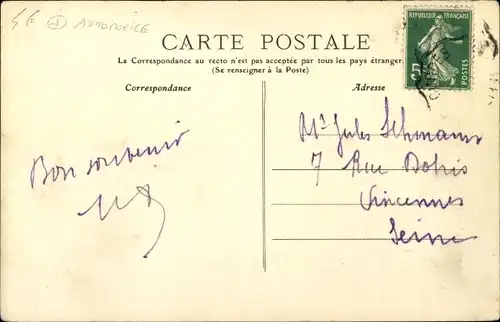 5E AUTOMOBILE
CARTE POSTALE
La Correspondance au recto n'est pas acceptée par tous les pays étranger.
(Se renseigner à la Poste)
Correspondance
Adresse
REPUBLIQUE FRANÇAISE
5
POSTES
Bon souvenir
Mr Jules
7 Rue
Vincennes
Seine